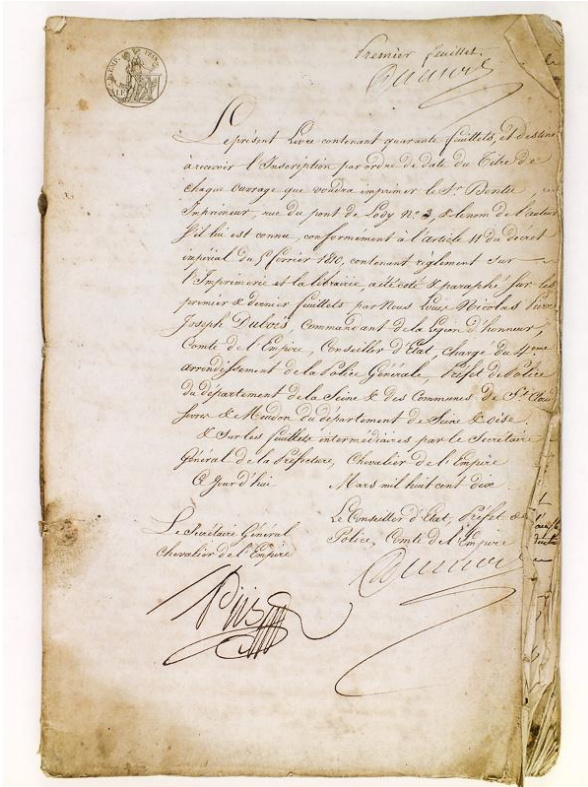 Premier feuillet.
Dubois
Le présent Livre contenant quarante feuillets, et destiné
à recevoir l'Inscription par ordre de date du Titre de
chaque ouvrage que voudra imprimer le Sr
Imprimeur, rue du pont de Lody No 3, & le nom de l'auteur
S'il lui est connu, conformément à l'article 11 du décret
impérial du 5 février 1810, contenant règlement sur
l'Imprimerie et la librairie, a été coté & paraphé sur les
premier & dernier feuillets par Nous Louis Nicolas Pierre
Joseph Dubois, Commandant de la Légion d'honneur,
Comte de l'Empire, Conseiller d'Etat, chargé du 4eme
arrondissement de la Police Générale, Préfet de Police
du département de la Seine & des Communes de St Cloud
Sèvres & Meudon du département de Seine & oise.
& Sur les feuillets intermédiaires par le Secrétaire
Général de la Préfecture, Chevalier de l'Empire
Ce Jourd'hui Mars mil huit cent dix
Le Secrétaire Général
Chevalier de l'Empire
Piis
Le Conseiller d'Etat, Préfet de
Police, Comte de l'Empire
Dubois